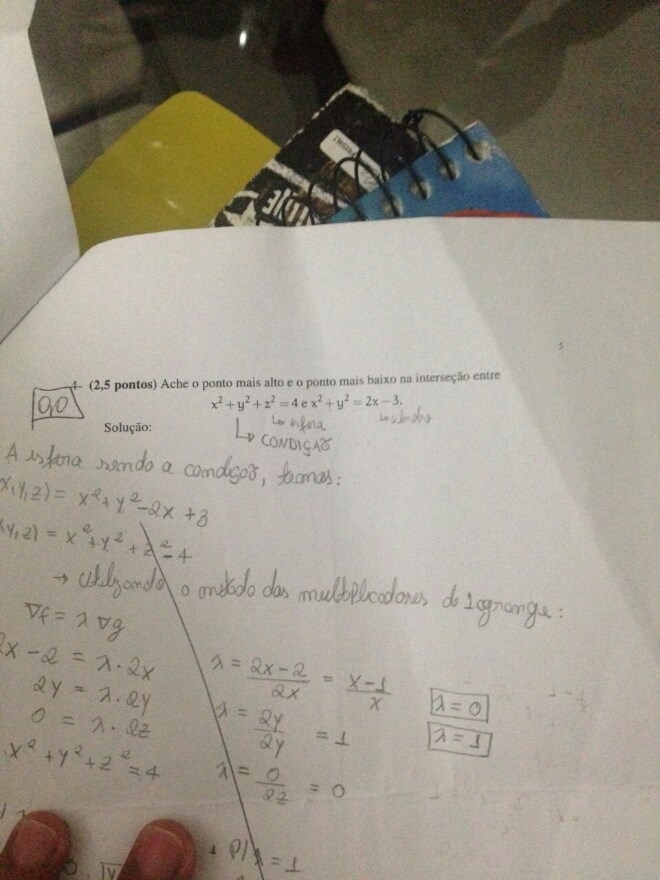 4- (2,5 pontos) Ache o ponto mais alto e o ponto mais baixo na interseção entre
x² + y² + z² = 4 e x² + y² = 2x − 3.
0,0
Solução:
↳ esfera
↳ cilindro
↳ CONDIÇÃO
A esfera sendo a condição, temos:
x,y,z) = x² + y² - 2x + 3
x,y,z) = x² + y² + z² - 4
→ Utilizando o método dos multiplicadores de Lagrange:
∇f = λ ∇g
2x - 2 = λ · 2x
2y = λ · 2y
0 = λ · 2z
x² + y² + z² = 4
λ = 2x-2 / 2x = x-1 / x
λ = 2y / 2y = 1
λ = 0 / 2z = 0
λ = 0
λ = 1
P/ λ = 1